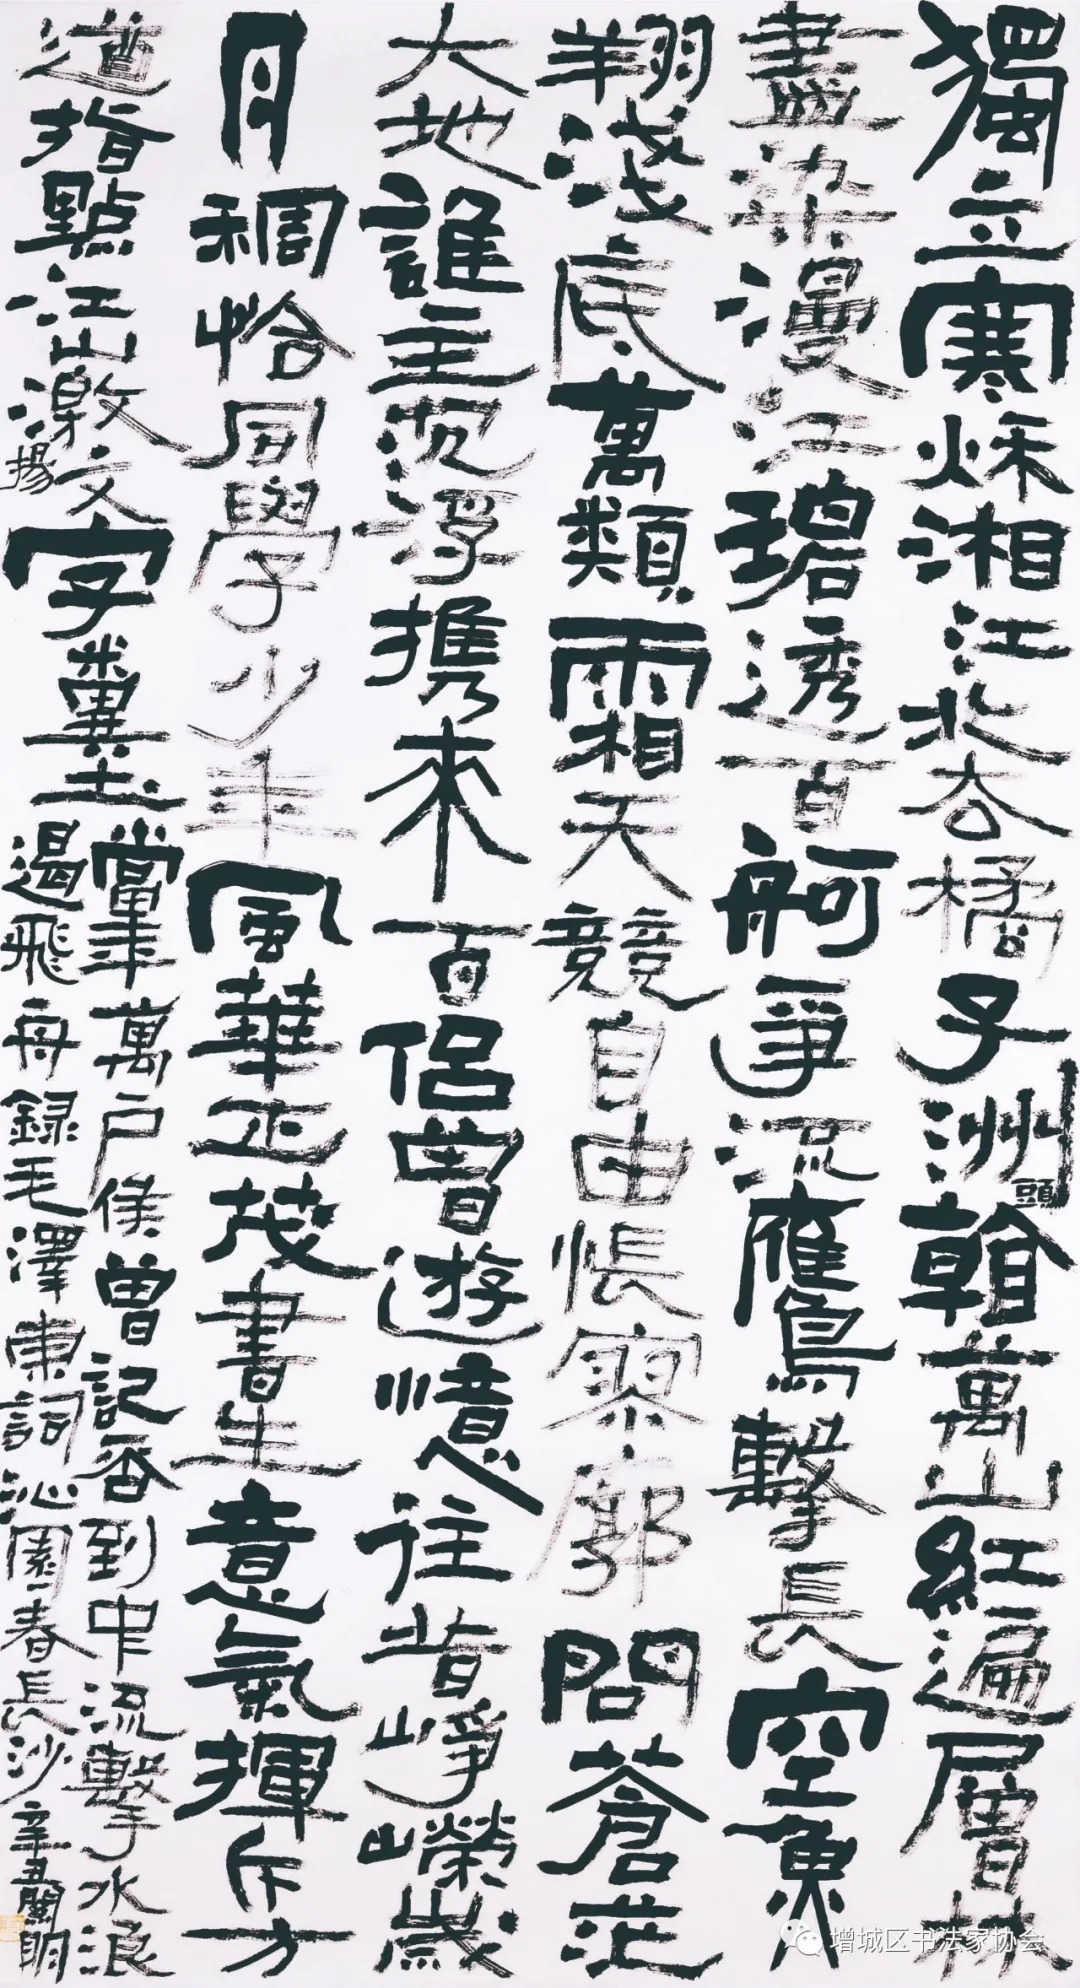 獨立寒秌湘江北去橘子洲頭看萬山紅遍層林
盡染漫江碧透百舸爭流鷹擊長空魚
翔淺底萬類霜天競自由悵寥廓問蒼茫
大地誰主沉浮携來百侶曾遊憶往昔崢嶸歲
月稠恰同學少年風華正茂書生意氣揮斥方
遒指點江山激揚文字糞土
當年萬户侯曾記否到中流擊水浪
遏飛舟録毛澤東詞沁園春長沙辛丑
增城区书法家协会